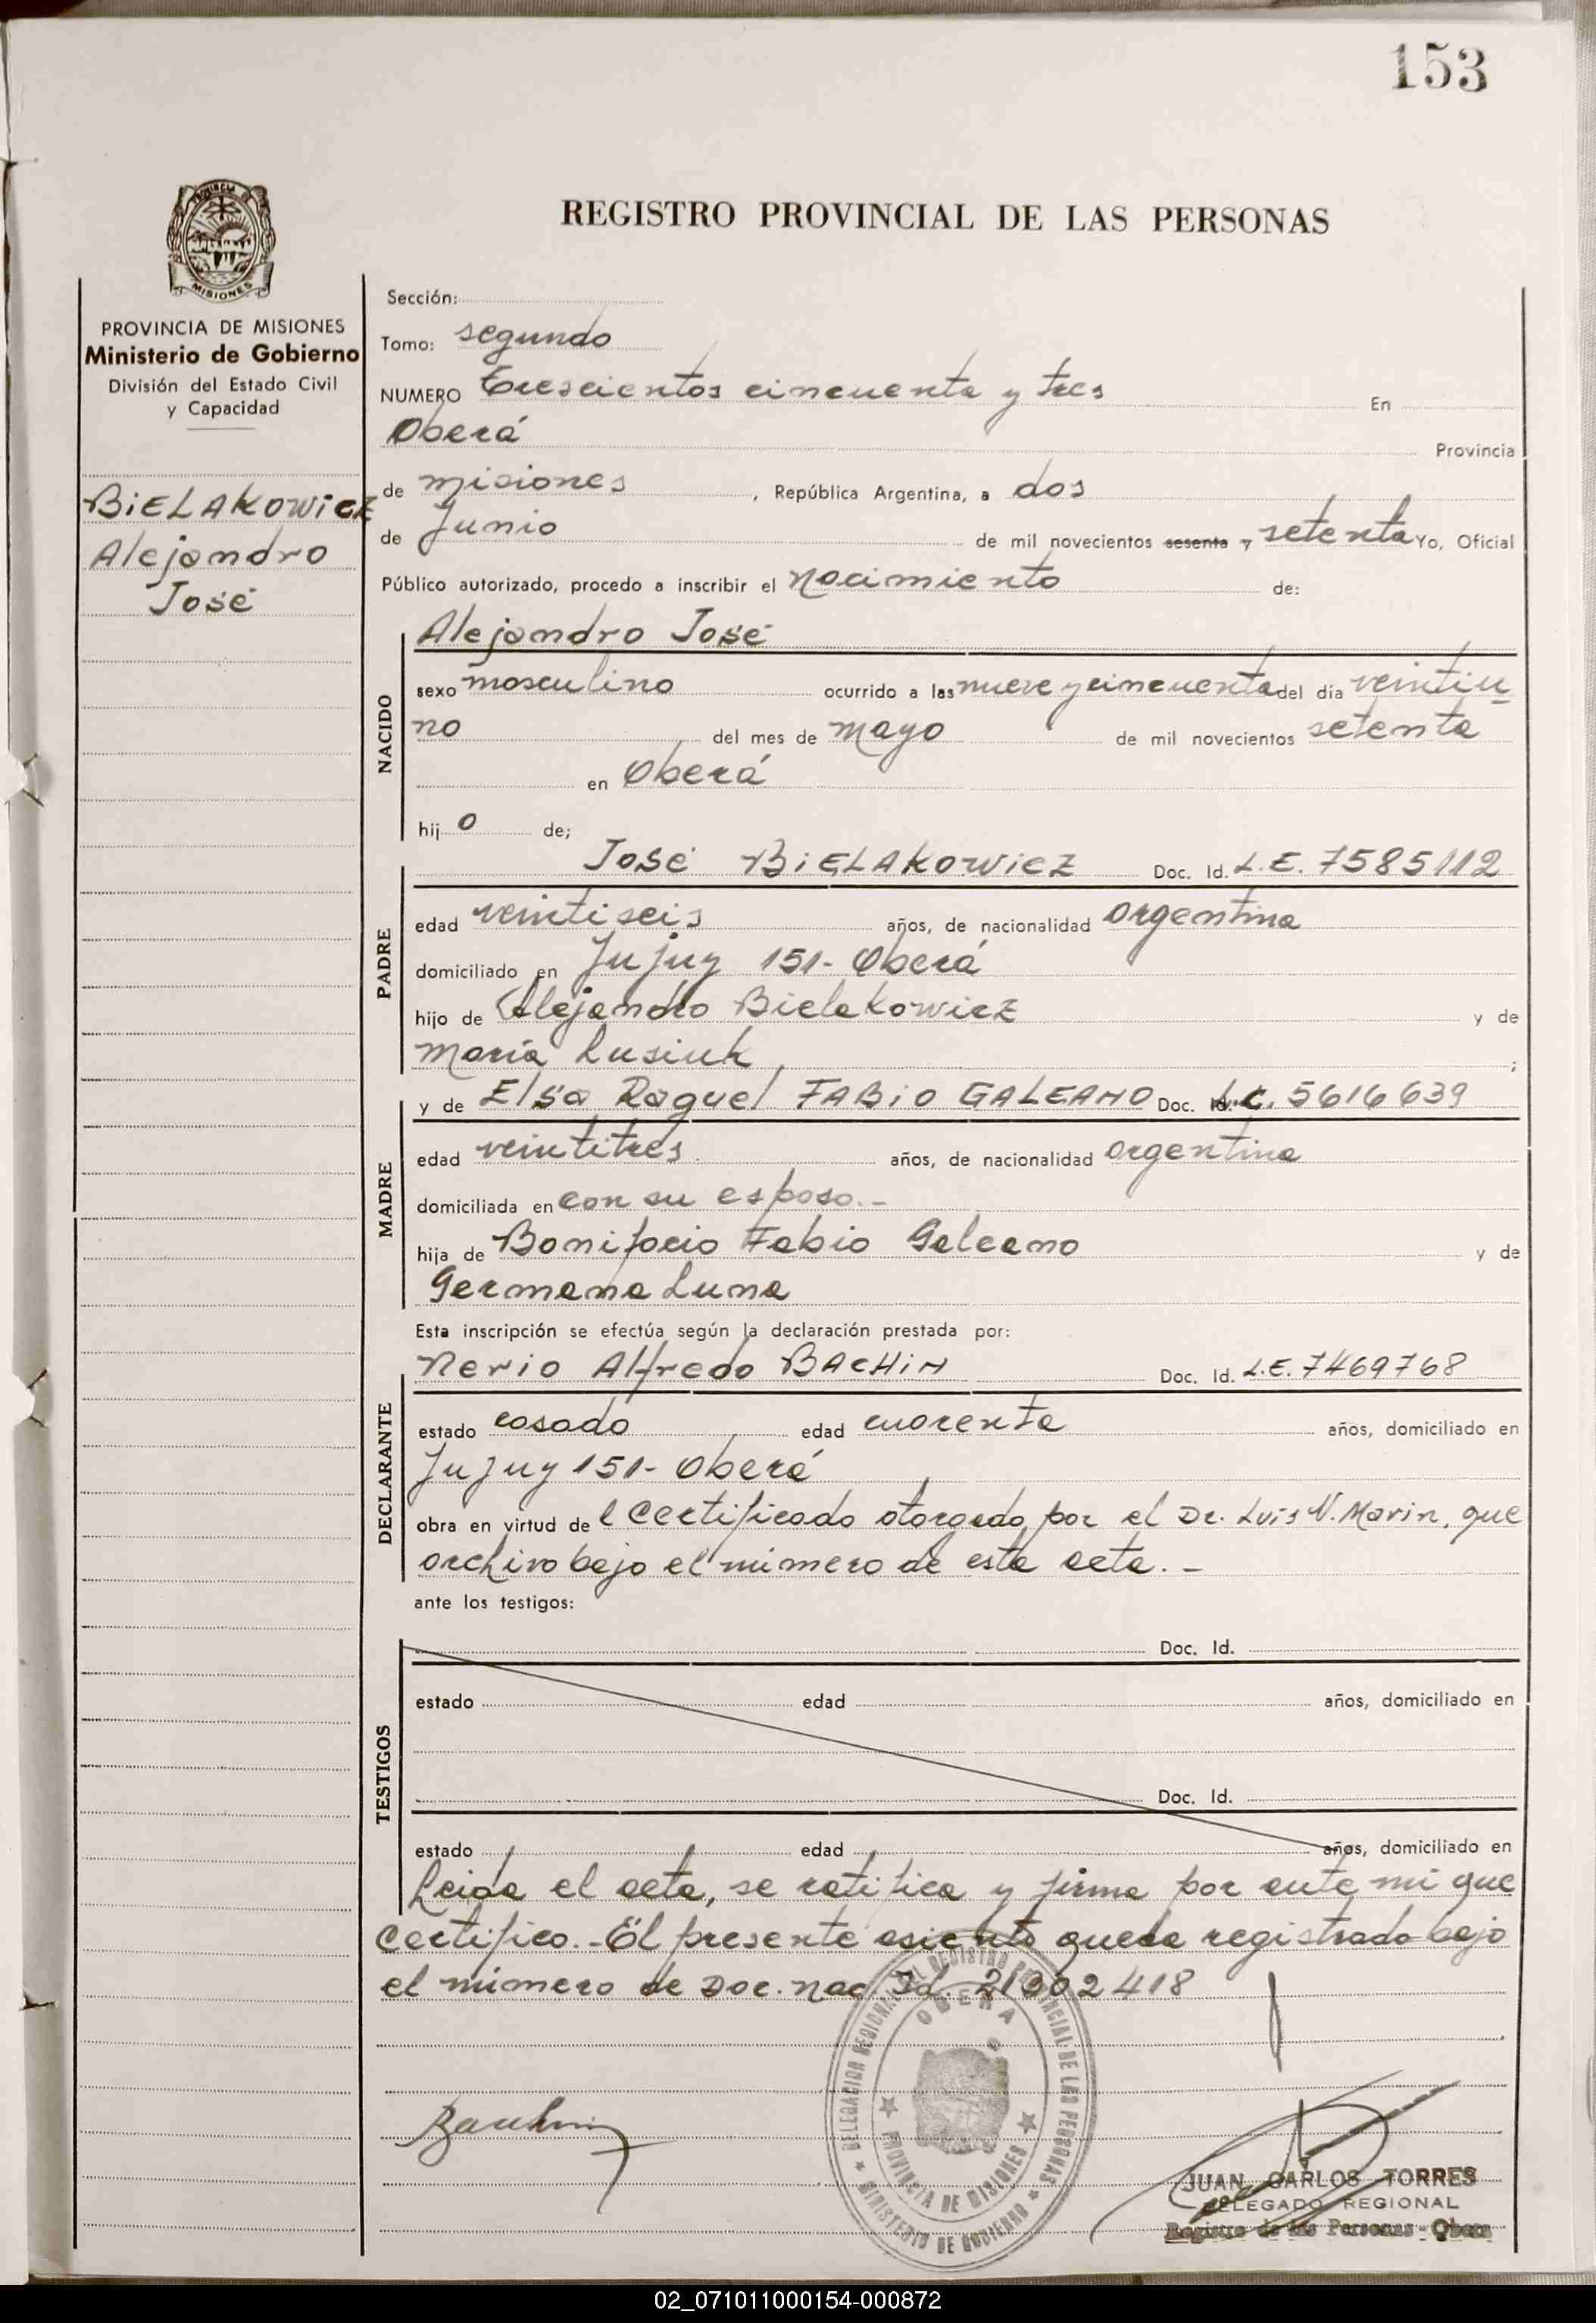 153
PROVINCIA DE
MISIONES
REGISTRO PROVINCIAL DE LAS PERSONAS
PROVINCIA DE MISIONES
Ministerio de Gobierno
División del Estado Civil
y Capacidad
BiELAKOWiCZ
Alejandro
José
Sección:
Tomo: segundo
NUMERO Trescientos cincuenta y tres En
Oberá Provincia
de misiones, República Argentina, a dos
de Junio de mil novecientos sesenta y setenta Yo, Oficial
Público autorizado, procedo a inscribir el nacimiento de:
NACIDO
Alejandro José
sexo masculino ocurrido a las nueve y cincuenta del día veintiu-
no del mes de mayo de mil novecientos setenta
en Oberá
hij o de;
PADRE
José BiELAKOWiCZ Doc. Id. L.E. 7585112
edad veintiseis años, de nacionalidad argentina
domiciliado en Jujuy 151- Oberá
hijo de Alejandro Bielakowicz y de
María Lusiuk ;
MADRE
y de Elsa Raquel FABiO GALEANO Doc. Id. L.C. 5616639
edad veintitres años, de nacionalidad argentina
domiciliada en con su esposo.-
hija de Bonifacio Fabio Galeano y de
Germana Luna
Esta inscripción se efectúa según la declaración prestada por:
DECLARANTE
Nerio Alfredo BACHiN Doc. Id. L.E. 7469768
estado casado edad cuarenta años, domiciliado en
Jujuy 151- Oberá
obra en virtud de l certificado otorgado por el Dr. Luis N. Marin, que
archivo bajo el número de esta acta.-
ante los testigos:
TESTIGOS
Doc. Id.
estado edad años, domiciliado en
Doc. Id.
estado edad años, domiciliado en
Leida el acta, se ratifica y firma por ante mi que
certifico.- El presente asiento queda registrado bajo
el número de Doc. nac. Id. 21302418
DELEGACION REGIONAL DEL REGISTRO PROVINCIAL DE LAS PERSONAS
OBERA
PROVINCIA DE MISIONES
MINISTERIO DE GOBIERNO
Bachin
JUAN CARLOS TORRES
DELEGADO REGIONAL
Registro de las Personas - Obera
02_071011000154-000872